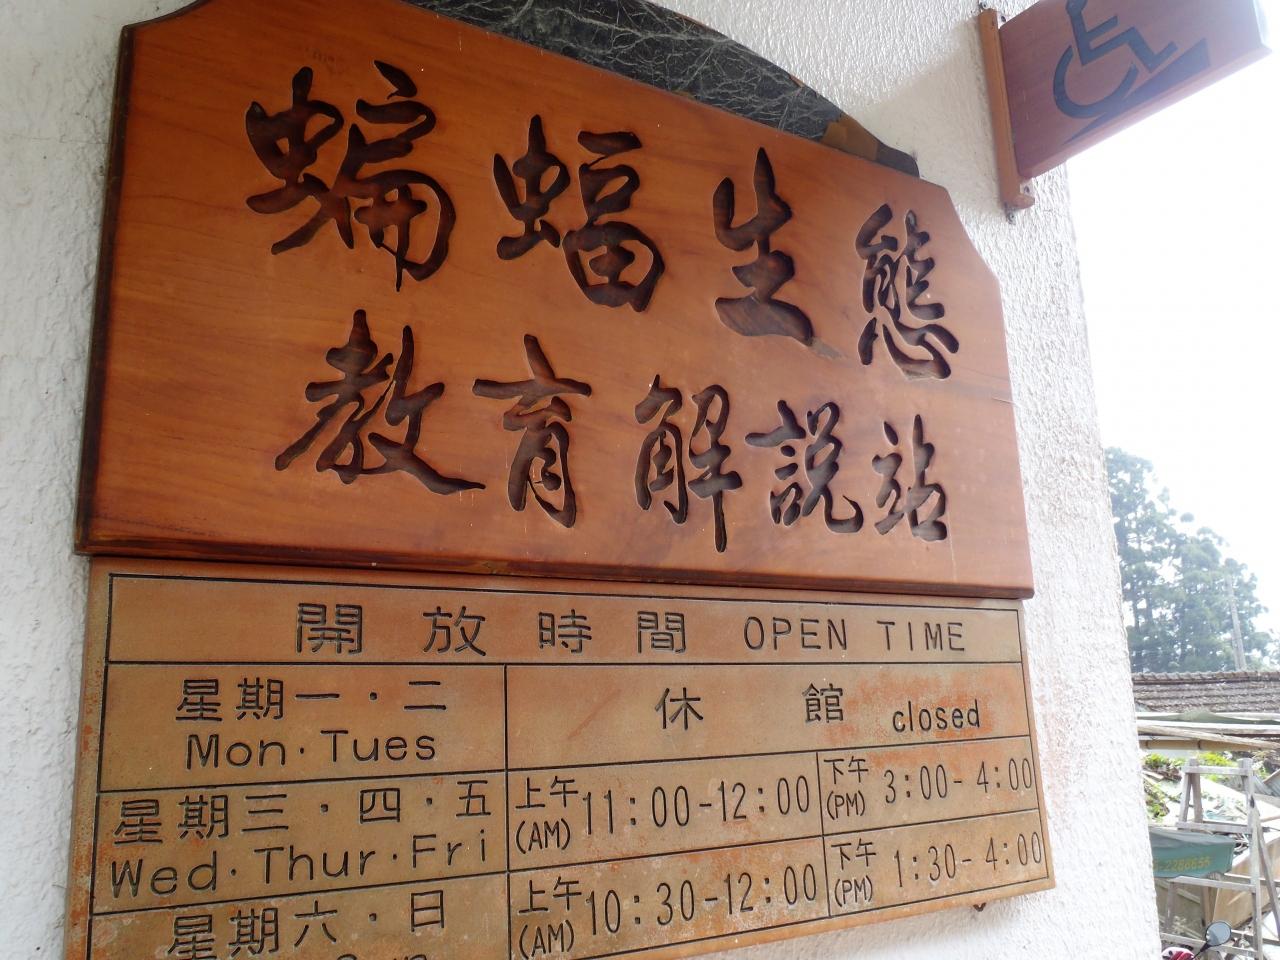 蝙蝠生態
教育解說站
開放時間 OPEN TIME
星期一・二 休館 closed
Mon・Tues
星期三・四・五 上午 11:00-12:00 下午 3:00-4:00
Wed・Thur・Fri (AM) (PM)
星期六・日 上午 10:30-12:00 下午 1:30-4:00
(AM) (PM)